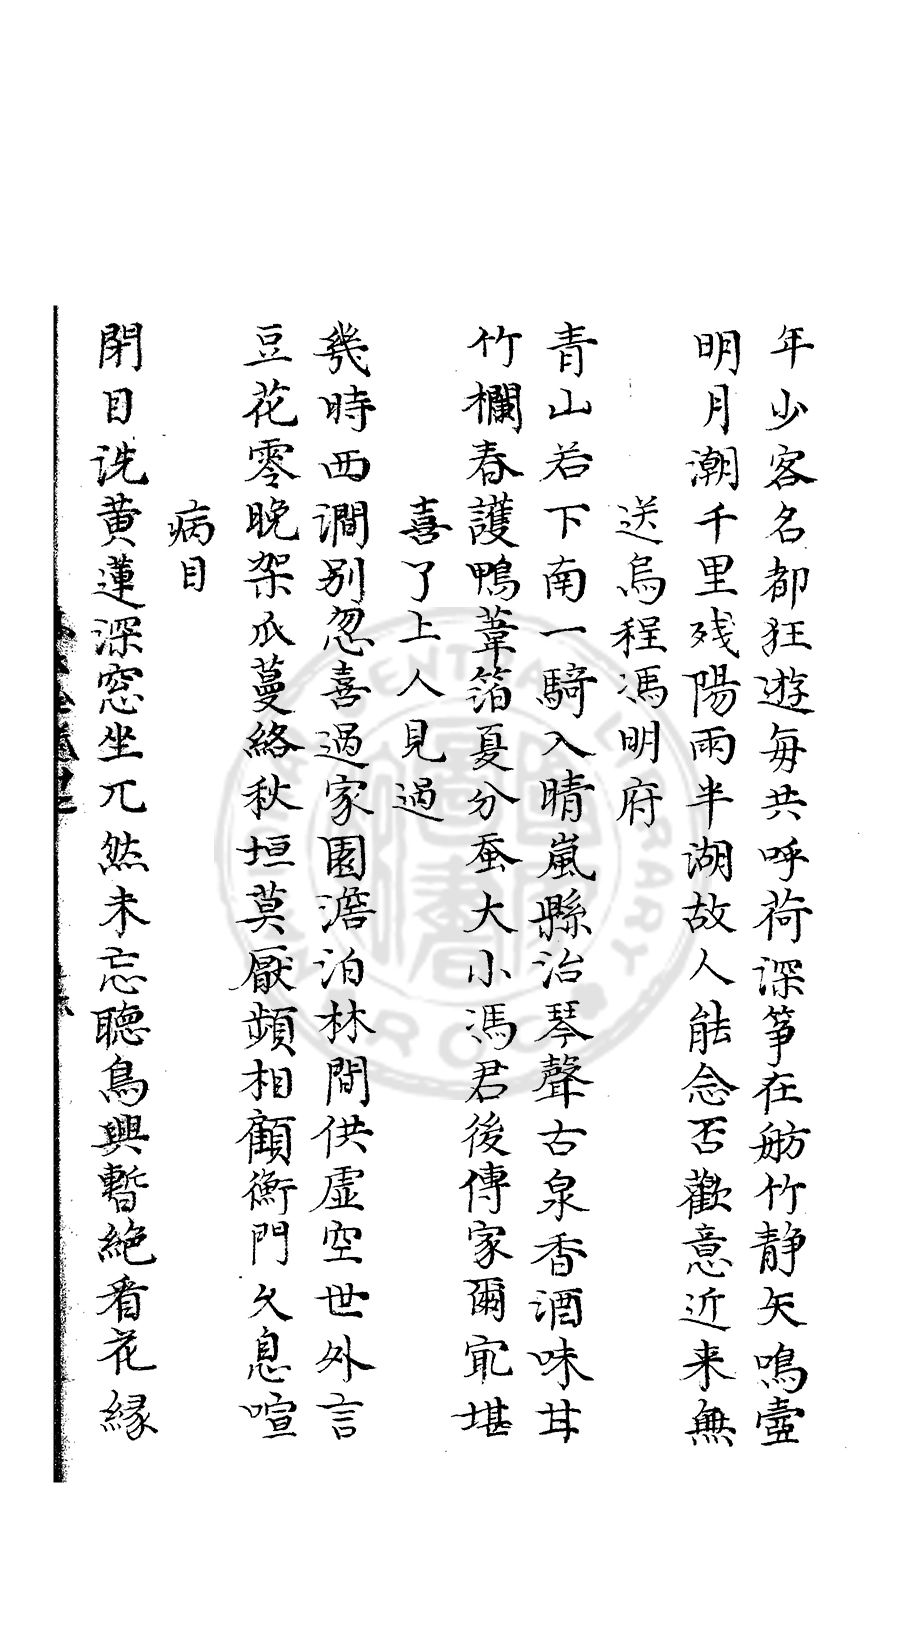 年少客名都狂遊每共呼荷深箏在舫竹静矢鳴壺
明月潮千里残陽雨半湖故人能念否歡意近来無
送烏程馮明府
青山若下南一騎入晴嵐縣治琴聲古泉香酒味甘
竹欄春護鴨葦箔夏分蚕大小馮君後傳家爾寔堪
喜了上人見過
幾時西澗别忽喜過家園澹泊林間供虚空世外言
豆花零晚架瓜蔓絡秋垣莫厭頻相顧衡門久息喧
病目
閉目洗黄蓮深窓坐兀然未忘聴鳥興暫絶看花縁
CENTRAL LIBRARY
R.O.C